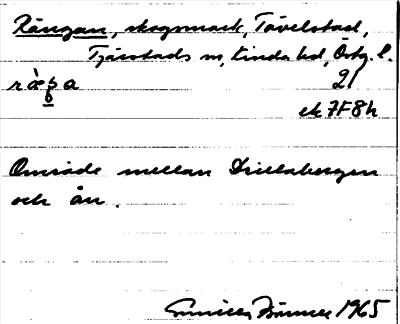 Rängan, skogsmark, Tåvelstad,
Tjärstads sn, Kinda hd, Östg. l.
2
ek 7F8h
Område mellan Drillabergen
och ån.
1965